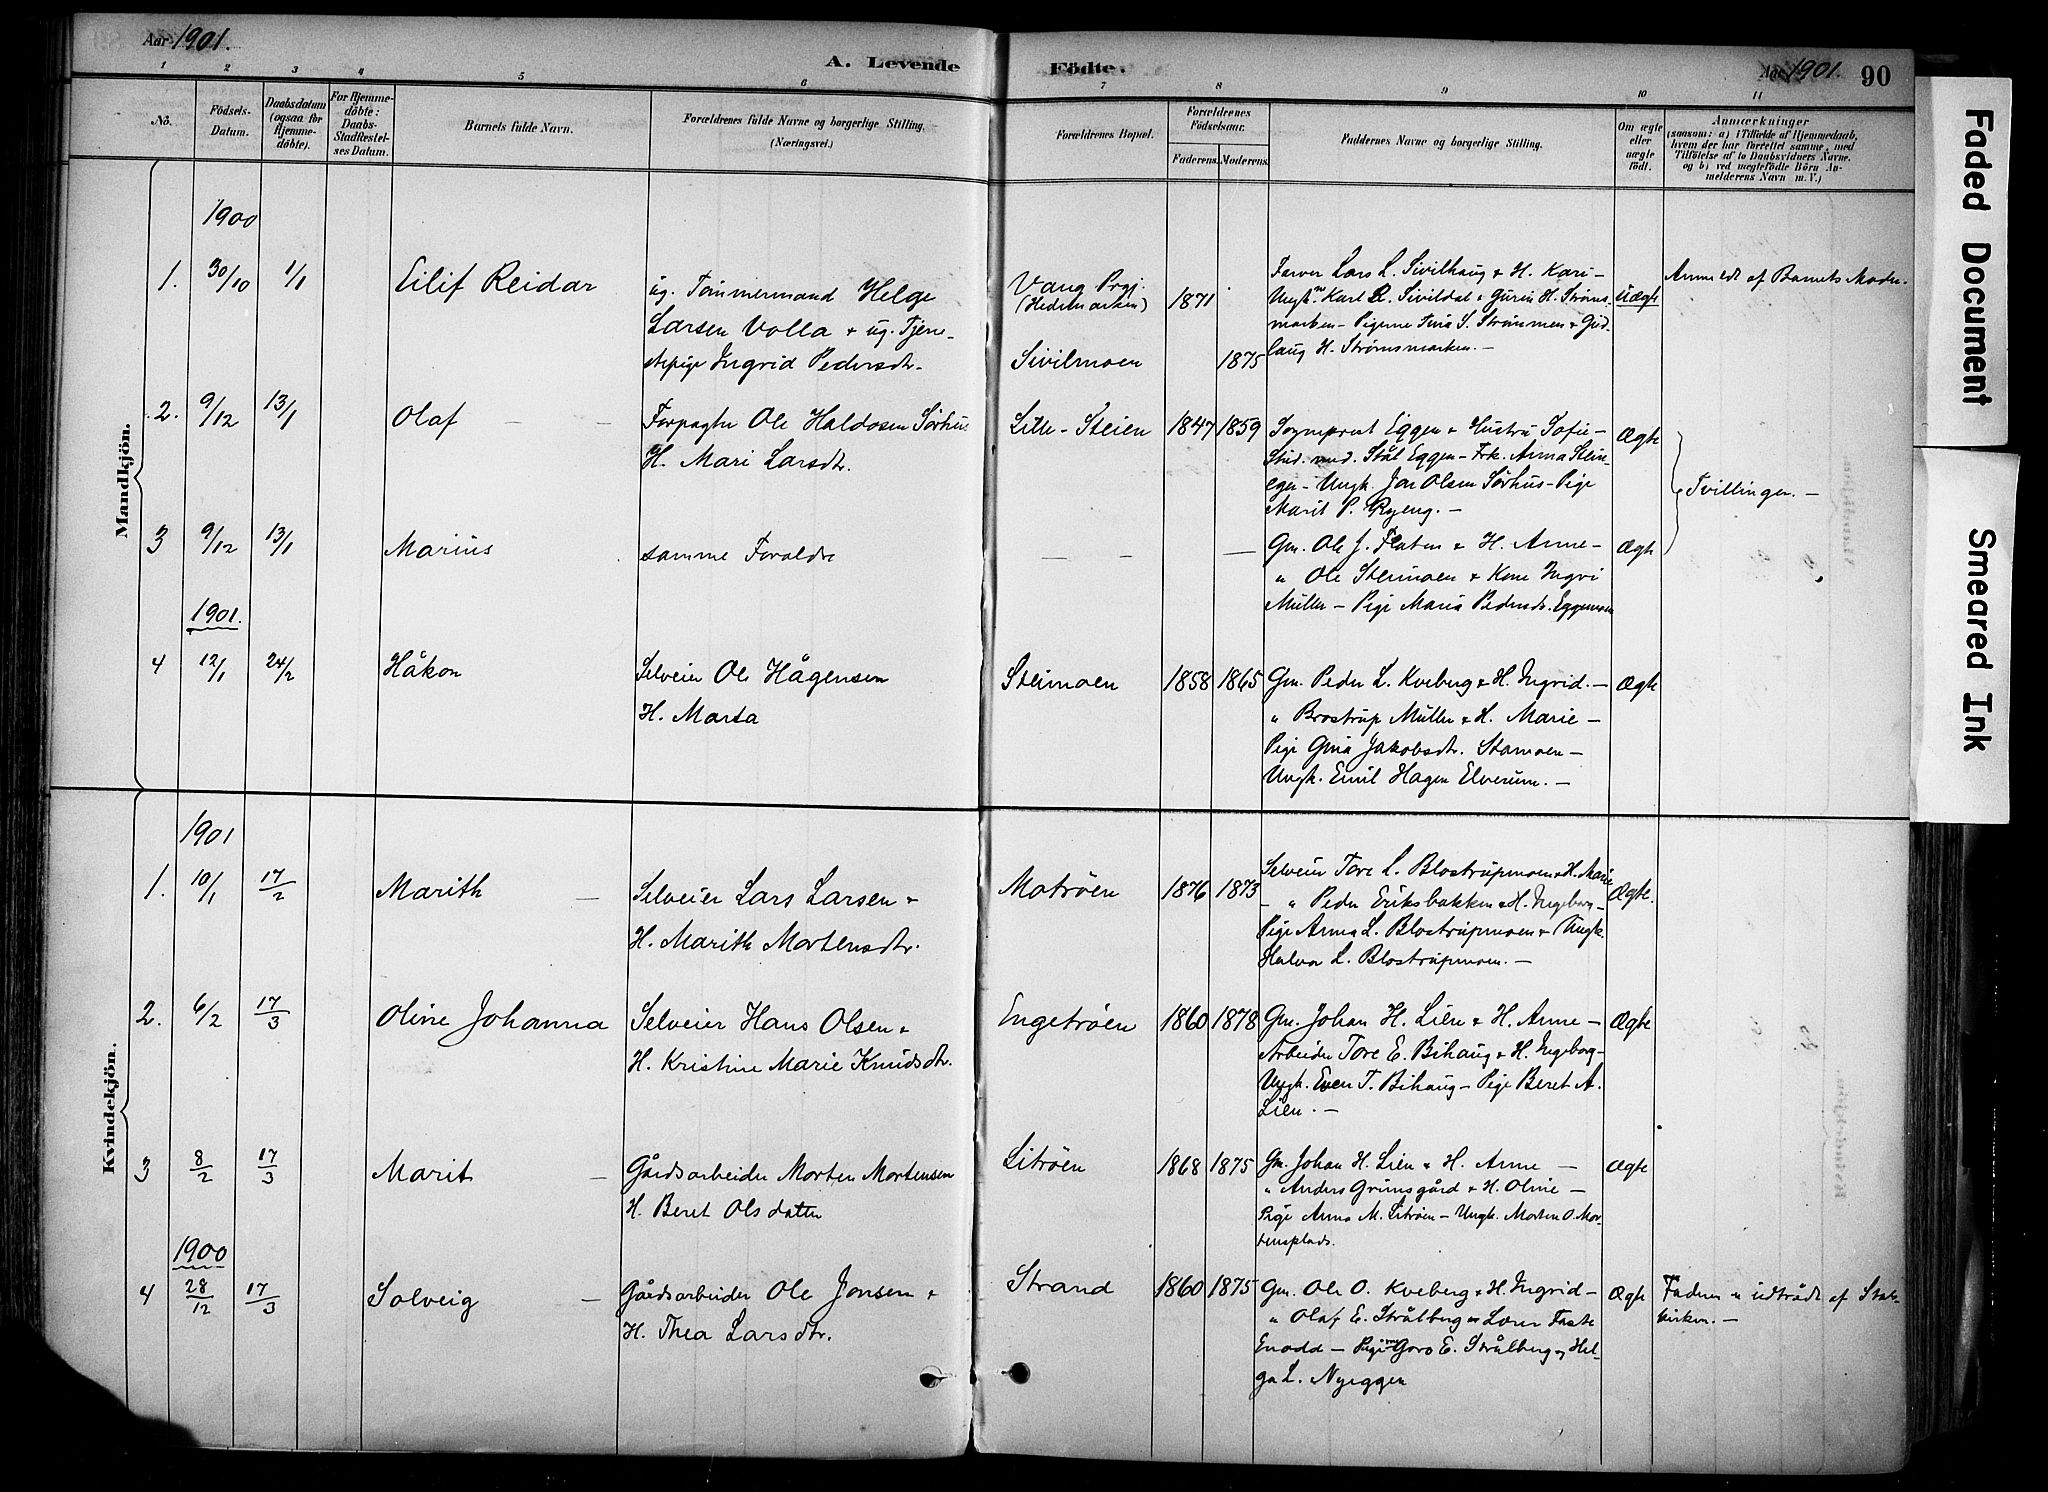 Aar 1901.
A. Levende Födte.
Aar 1901. 90
1 2 3 4 5 6 7 8 9 10 11
No.
Födsels-Datum.
Daabsdatum (ogsaa for Hjemmedöbte).
For Hjemmedöbte: Daabs-Stadfestelses Datum.
Barnets fulde Navn.
Forældrenes fulde Navne og borgerlige Stilling. (Næringsvei.)
Forældrenes Bopæl.
Forældrenes Födselsaar.
Faderens. Moderens.
Faddernes Navne og borgerlige Stilling.
Om ægte eller uægte födt.
Anmærkninger
(saasom: a) i Tilfælde af Hjemmedaab, hvem der har forrettet samme, med Tilföielse af to Daabsvidners Navne, og b) ved uegtefödte Börn Anmelderens Navn m. V.)
Mandkjön.
1900
1. 30/10 1/1 Eilif Reidar
ug. Tömmermand Helge
Larsen Volla & ug. Tjene-
stepige Ingrid Pedersdtr.
Vang Prgj.
(Hedemarken) 1871
Sivilmoen 1875
Farver Lars L. Sivilhaug & H. Kari -
Ungk. Karl R. Sivildal & Gurin H. Strøms-
marken - Pigerne Tina S. Strømmen & Gud-
laug H. Strømsmarken. -
Uægte
Anmeldt af Barnets Moder.
2. 9/12 13/1 Olaf -
Forpagter Ole Haldosen Sørhus
H. Mari Larsdtr.
Lille-Steien 1847 1859
Sogneprest Eggen & Hustru Sofie -
Stud. med. Stål Eggen - Frk. Anna Stein-
eger - Ungk. Jon Olsen Sørhus - Pige
Marit P. Ryeng. -
Ægte
Tvillinger. -
3 9/12 13/1 Marius
samme Forældre
- - -
Gm. Ole J. Floten & H. Anne -
" Ole Steimoen & Kone Ingri
Müller - Pige Maria Pedersdtr. Eggemoen
Ægte
1901.
4 12/1 24/2 Håkon
Selveier Ole Hågensen
H. Marta
Steimoen 1858 1865
Gm. Peder L. Kveberg & H. Ingrid. -
" Brostrup Müller & H. Marie -
Pige Gina Jakobsdtr. Stamoen -
Ungk. Emil Hagen Elverum. -
Ægte
Kvindekjön.
1901
1. 10/1 17/2 Marith
Selveier Lars Larsen &
H. Marith Mortensdtr.
Motrøen 1876 1873
Selveier Tore L. Blostrupmoen & H. Marie
- " Peder Eriksbakken & H. Ingeborg -
Pige Anna L. Blostrupmoen & Ungk.
Halvor L. Blostrupmoen. -
Ægte.
2. 6/2 17/3 Oline Johanna
Selveier Hans Olsen &
H. Kristine Marie Knudsdtr.
Engetrøen 1860 1878
Gm. Johan H. Lien & H. Anne -
Arbeider Tore E. Bihaug & H. Ingeborg -
Ungk. Even T. Bihaug - Pige Beret A.
Lien. -
Ægte
3 8/2 17/3 Marit -
Gårdsarbeider Morten Mortensen
H. Beret Olsdatter
Litrøen 1868 1875
Gm. Johan H. Lien & H. Anne -
" Anders Grimsgård & H. Oline -
Pige Anna M. Litrøen - Ungk. Morten O. Mor-
tensplads.
Ægte
1900
4 28/12 17/3 Solveig -
Gårdsarbeider Ole Jonsen &
H. Thea Larsdtr.
Strand 1860 1875
Gm. Ole O. Kveberg & H. Ingrid -
" Olaf E. Strålberg og Lærer Faste
Enodd - Pigerne Goro E. Strålberg og Hel-
ga L. Nyeggen
Ægte
Faderen er udtrådt af Stats-
kirken. -
Faded Document
Smeared Ink